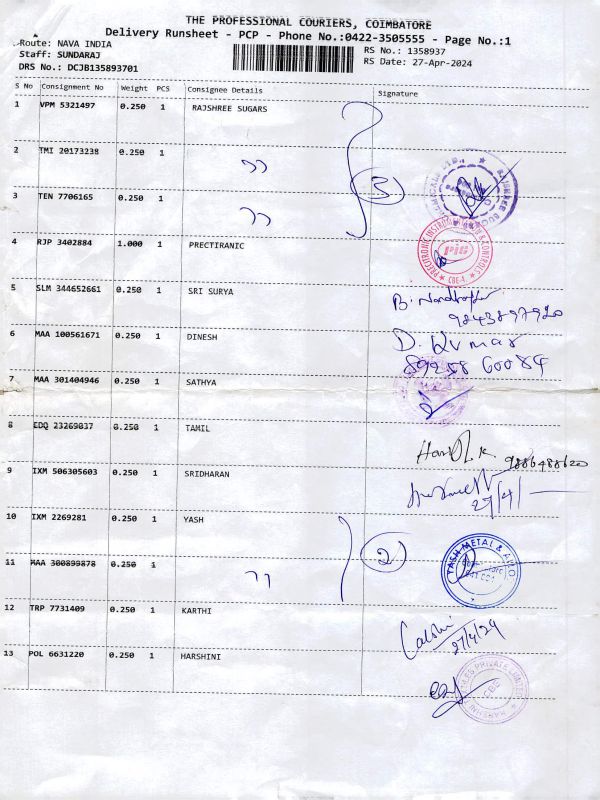 THE PROFESSIONAL COURIERS, COIMBATORE
Delivery Runsheet - PCP - Phone No.:0422-3505555 - Page No.:1
Route: NAVA INDIA
RS No.: 1358937
Staff: SUNDARAJ
RS Date: 27-Apr-2024
DRS No.: DCJB135893701
S No Consignment No Weight PCS Consignee Details Signature
1 VPM 5321497 0.250 1 RAJSHREE SUGARS
2 TMI 20173238 0.250 1 ,,
3 TEN 7706165 0.250 1 ,,
3
4 RJP 3402884 1.000 1 PRECTIRANIC
PIC
CBE-4
5 SLM 344652661 0.250 1 SRI SURYA
9843897920
6 MAA 100561671 0.250 1 DINESH
D. Kumar
89258 60084
7 MAA 301404946 0.250 1 SATHYA
8 EDQ 23269037 0.250 1 TAMIL
9886488620
9 IXM 506305603 0.250 1 SRIDHARAN
27/4/
10 IXM 2269281 0.250 1 YASH
2
YASH METAL &
11 MAA 300899878 0.250 1 ,,
12 TRP 7731409 0.250 1 KARTHI
27/4/24
13 POL 6631220 0.250 1 HARSHINI
PRIVATE LIMITED
CBE